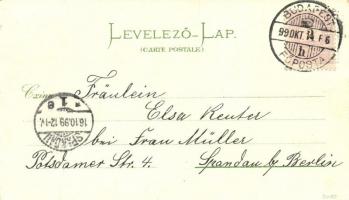 LEVELEZŐ-LAP.
(CARTE POSTALE.)
BUDAPEST
99 OKT 14 F6
h
FŐPOSTA
Czim: Fräulein
Elsa Reuter
bei Frau Müller
Potsdamer Str. 4. Spandau b/ Berlin
SPANDAU
16.10.99. 12-1V.
* 1 e